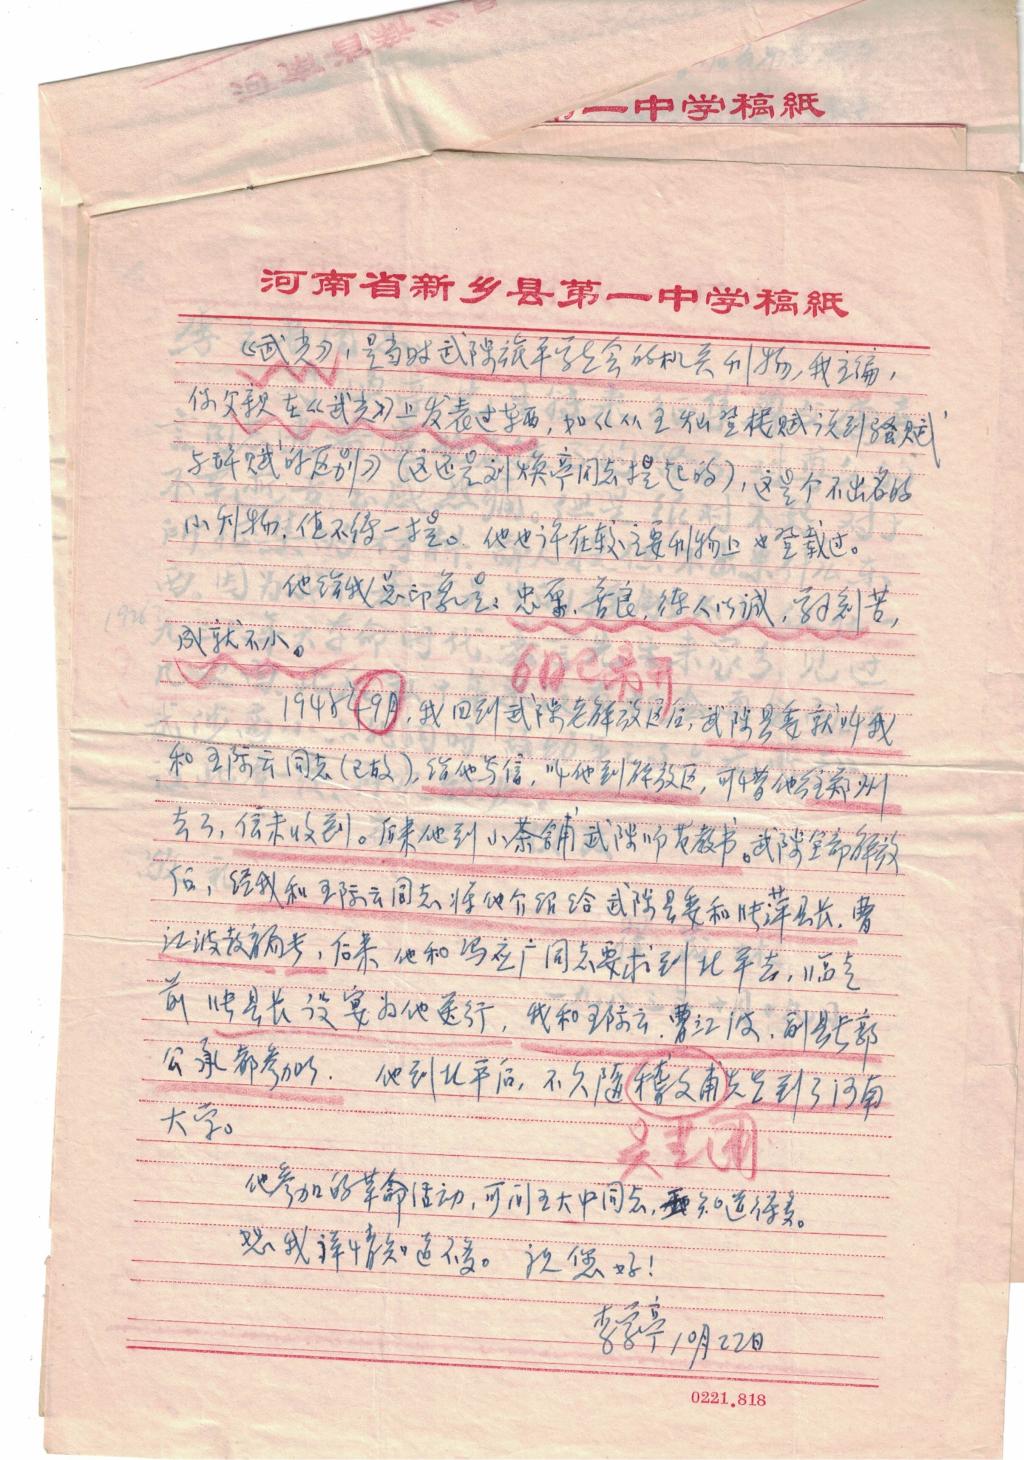 第一中学稿紙
河南省新乡县第一中学稿紙
《武光》,是当时武陟旅平学生会的机关刊物,我主编,
你父亲在《武光》上发表过东西,如《从王粲登楼赋谈到骚赋
与辞赋的区别》(这还是刘焕亭同志提起的),这是个不出名的
小刊物,值不得一提。他也许在较主要刊物上也登载过。
他给我总印象是:忠厚,善良,待人以诚,学习刻苦,
成就不小。
6日已离开
1948年9月,我回到武陟老解放区后,武陟县委就叫我
和王际云同志(已故),给他写信,叫他到解放区,可惜他往郑州
去了,信未收到。后来他到小茶铺武陟师范教书。武陟全部解放
后,经我和王际云同志将他介绍给武陟县委和张萍县长,曹
江波教育局长,后来他和冯在广同志要求到北平去,临走
前张县长设宴为他送行,我和王际云、曹江波、副县长郭
公承都参加。他到北平后,不久随嵇文甫先生到了河南
大学。
他参加的革命活动,可问王大中同志,知道得多。
恕我详情知道不多。祝您好!
李学亭 10月22日
0221.818